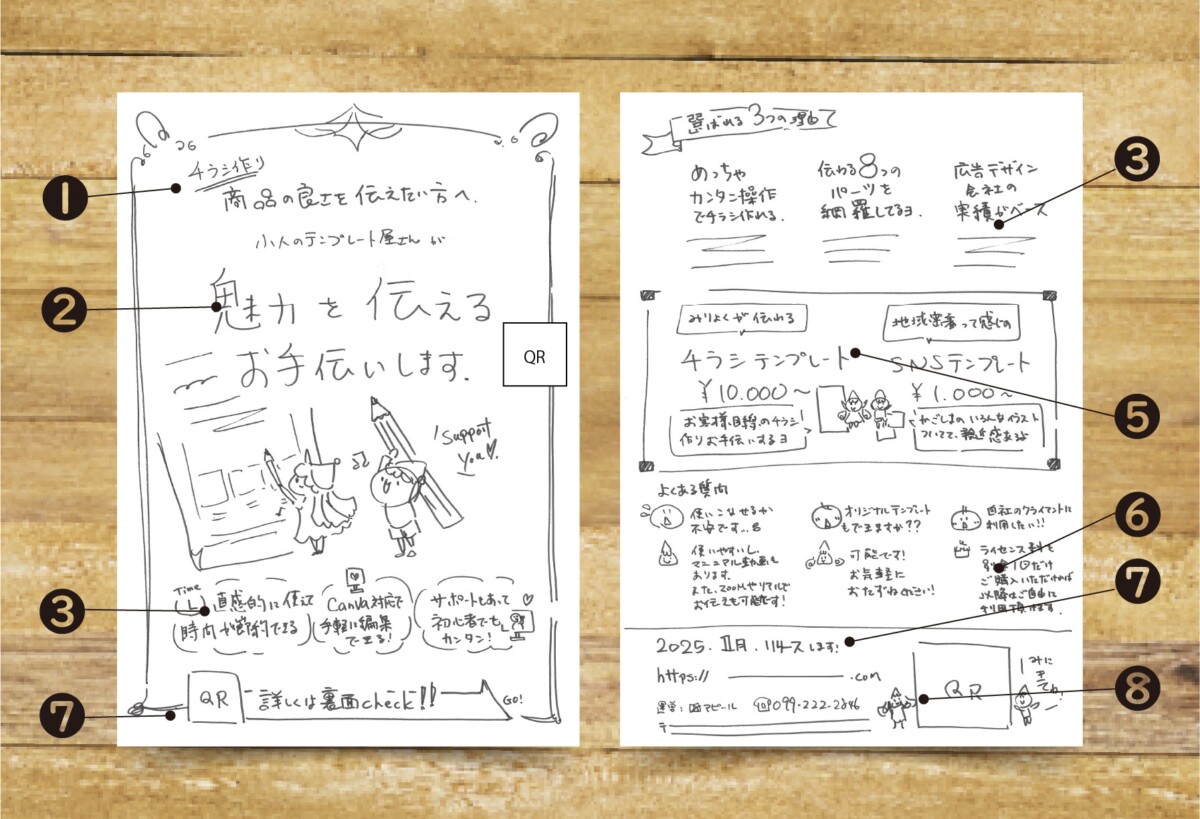 ❶
チラシ作り
商品の良さを伝えたい方へ.
小人のテンプレート屋さんが
❷
魅力を伝える
お手伝いします.
QR
! Support
you♡.
♪♫
❸
Time
直感的に使えて
時間が節約できる
Canva対応で
手軽に編集
できる!
サポートもあって
初心者でも
カンタン!
❼
QR
詳しくは裏面check!!
GO!
選ばれる3つの理由
❸
めっちゃ
カンタン操作
でチラシ作れる.
伝わる8つの
パーツを
網羅してるヨ.
広告デザイン
会社の
実績がベース
みりょくが伝わる
チラシテンプレート
¥10.000〜
お客様目線のチラシ
作りお手伝いするヨ
地域密着って感じの
SNSテンプレート
¥1.000〜
かごしまのいろんなイラスト
ついてて、親近感あるよ
❺
よくある質問
使いこなせるか
不安です...
使いやすいし
マニュアル動画も
あります.
また、ZOOMやリアルで
お伝えも可能です!
オリジナルテンプレート
もできますか??
可能です!
お気軽に
おたずねください!
自社のクライアントに
利用したい!!
ライセンス料を
1回だけ
ご購入いただければ
以降はご自由に
利用頂けます.
❻
❼
2025.11月.リリースします!
https:// .com
運営:㈱アピール ☎099-222-2846
〒
QR
みに
きてね!
❽